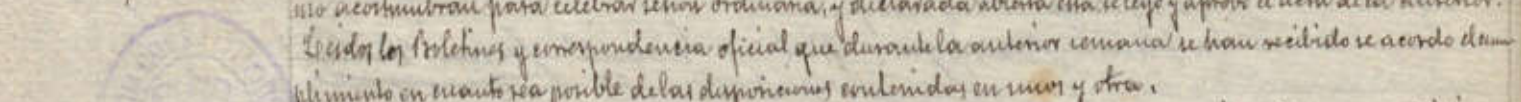 mo acostumbran para celebrar sesión ordinaria, y declarada abierta esta se leyó y aprobó el acta de la anterior.
Leidos los Boletines y correspondencia oficial que durante la anterior semana se han recibido se acordo el cum
plimiento en cuanto sea posible de las disposiciones contenidas en unos y otra.